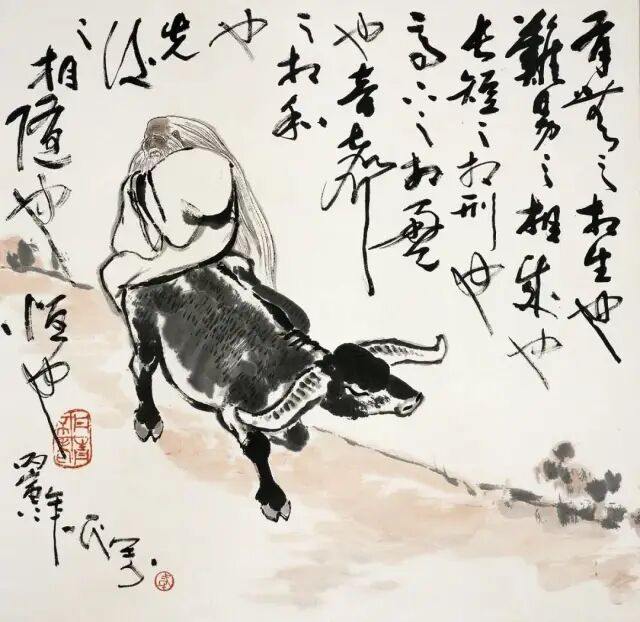 有無之相生也
難易之相成也
長短之相刑也
高下之相盈
也音聲
之相和
也
先
後
之相隨也
恒也
丙寅年